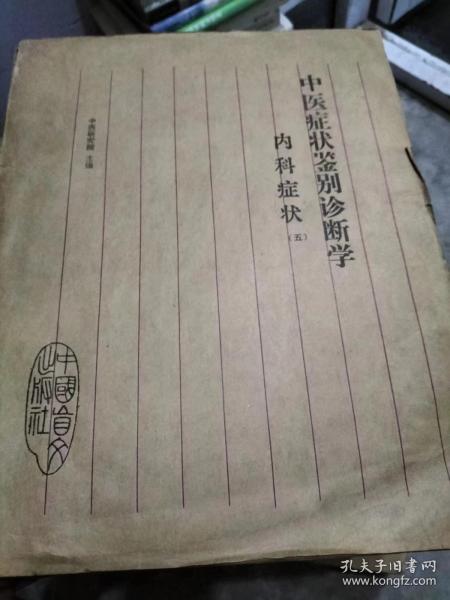 中医症状鉴别诊断学
内科症状
（五）
中医研究院 主编
中國盲文
出版社
孔夫子旧书网
www.kongfz.com